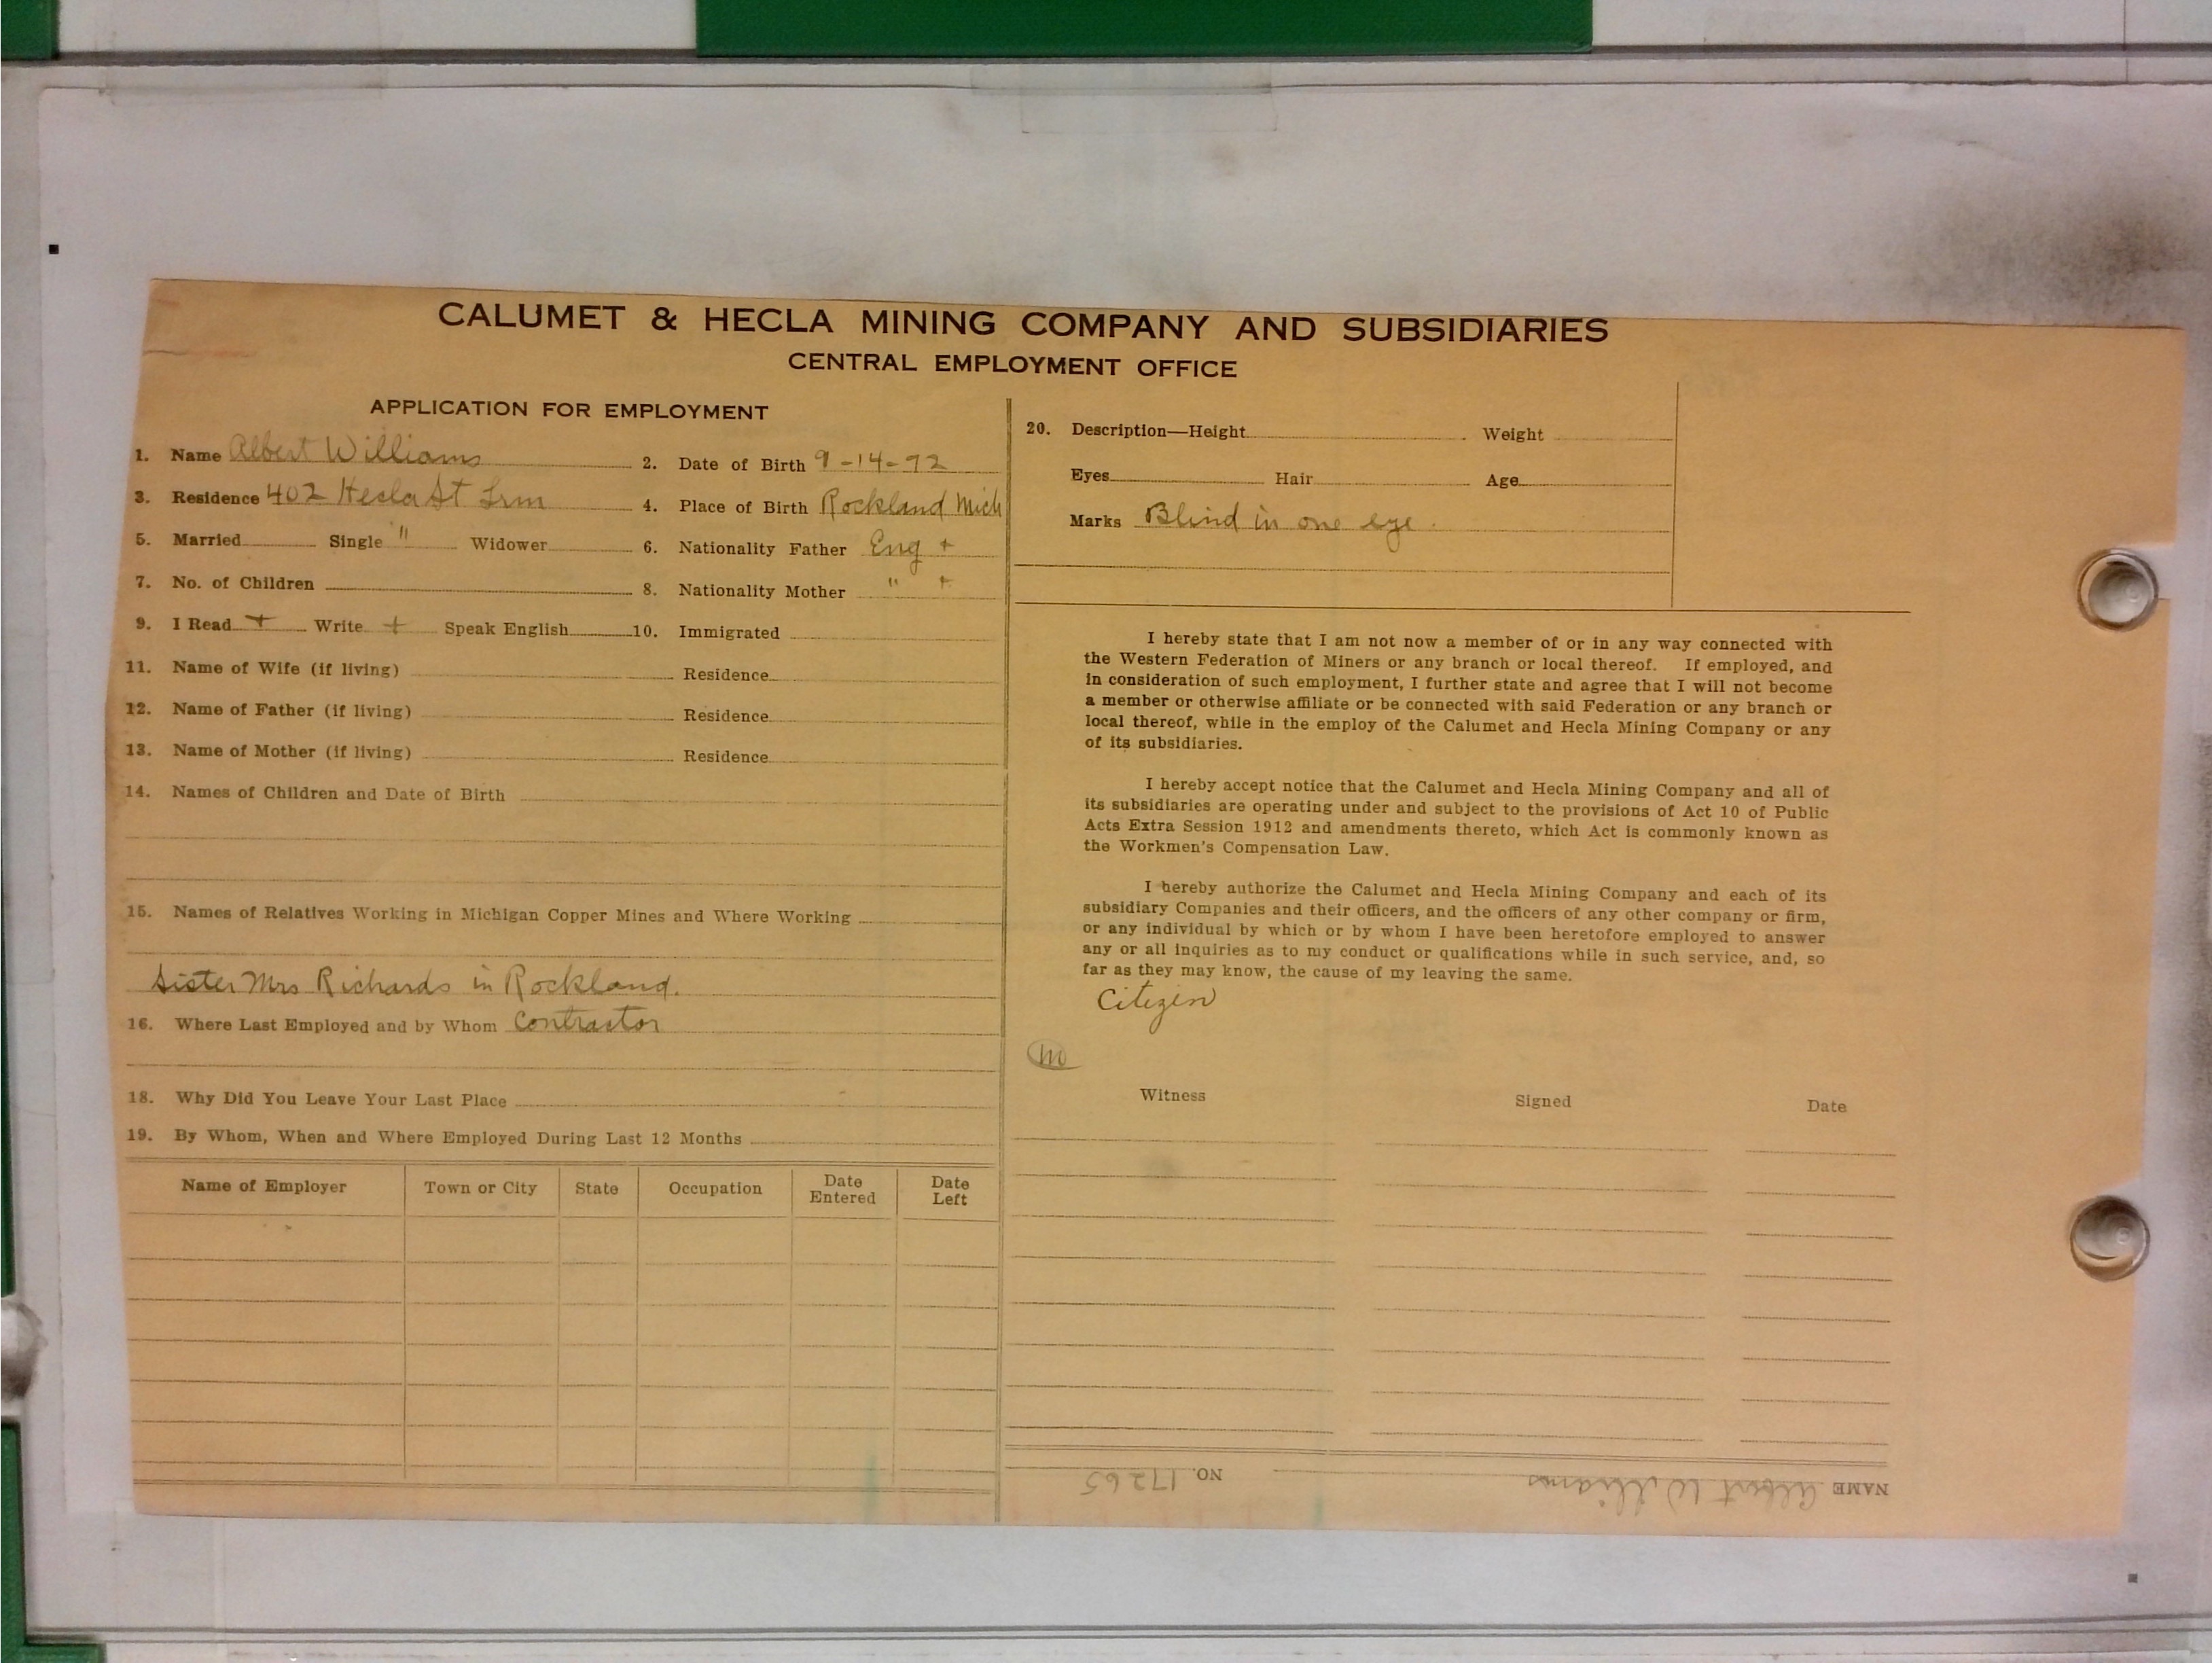 CALUMET & HECLA MINING COMPANY AND SUBSIDIARIES
CENTRAL EMPLOYMENT OFFICE
APPLICATION FOR EMPLOYMENT
1. Name Albert Williams 2. Date of Birth 9-14-92
3. Residence 402 Hecla St Lrm 4. Place of Birth Rockland Mich
5. Married Single " Widower 6. Nationality Father Eng +
7. No. of Children 8. Nationality Mother " +
9. I Read + Write + Speak English 10. Immigrated
11. Name of Wife (if living) Residence
12. Name of Father (if living) Residence
13. Name of Mother (if living) Residence
14. Names of Children and Date of Birth
15. Names of Relatives Working in Michigan Copper Mines and Where Working
Sister Mrs Richards in Rockland.
16. Where Last Employed and by Whom Contractor
18. Why Did You Leave Your Last Place
19. By Whom, When and Where Employed During Last 12 Months
Name of Employer Town or City State Occupation Date Entered Date Left
20. Description—Height Weight
Eyes Hair Age
Marks Blind in one eye.
I hereby state that I am not now a member of or in any way connected with
the Western Federation of Miners or any branch or local thereof. If employed, and
in consideration of such employment, I further state and agree that I will not become
a member or otherwise affiliate or be connected with said Federation or any branch or
local thereof, while in the employ of the Calumet and Hecla Mining Company or any
of its subsidiaries.
I hereby accept notice that the Calumet and Hecla Mining Company and all of
its subsidiaries are operating under and subject to the provisions of Act 10 of Public
Acts Extra Session 1912 and amendments thereto, which Act is commonly known as
the Workmen's Compensation Law.
I hereby authorize the Calumet and Hecla Mining Company and each of its
subsidiary Companies and their officers, and the officers of any other company or firm,
or any individual by which or by whom I have been heretofore employed to answer
any or all inquiries as to my conduct or qualifications while in such service, and, so
far as they may know, the cause of my leaving the same.
Citizen
Witness Signed Date
NAME Albert Williams NO. 17265